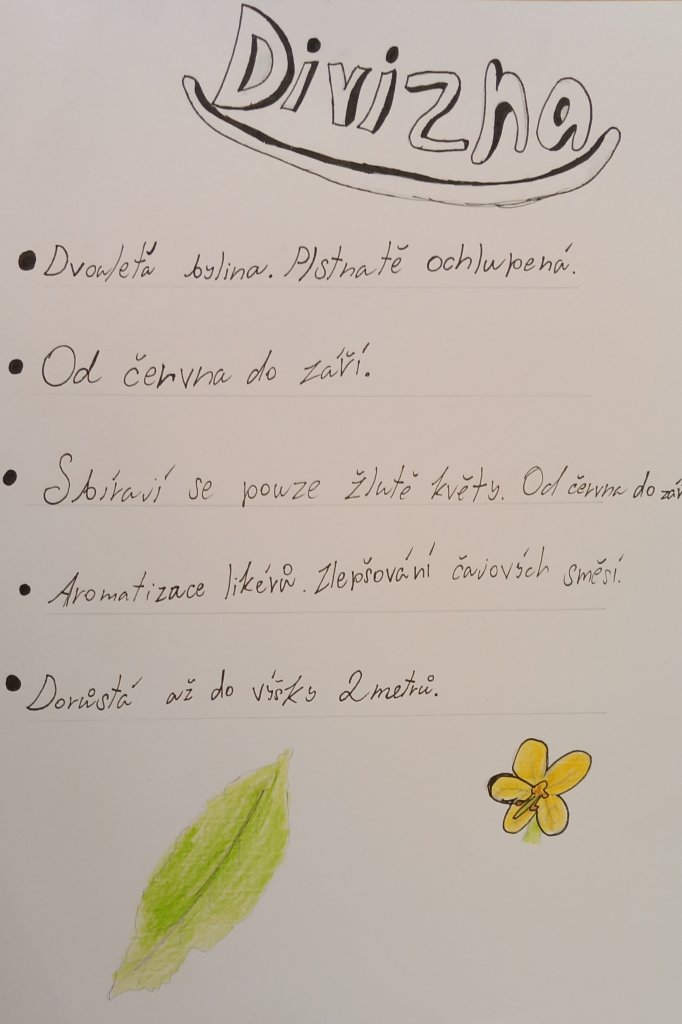 Divizna
Dvouletá bylina. Plstnatě ochlupená.
Od června do září.
Sbírají se pouze žluté květy. Od června do zář
Aromatizace likérů. Zlepšování čajových směsí.
Dorůstá až do výšky 2 metrů.